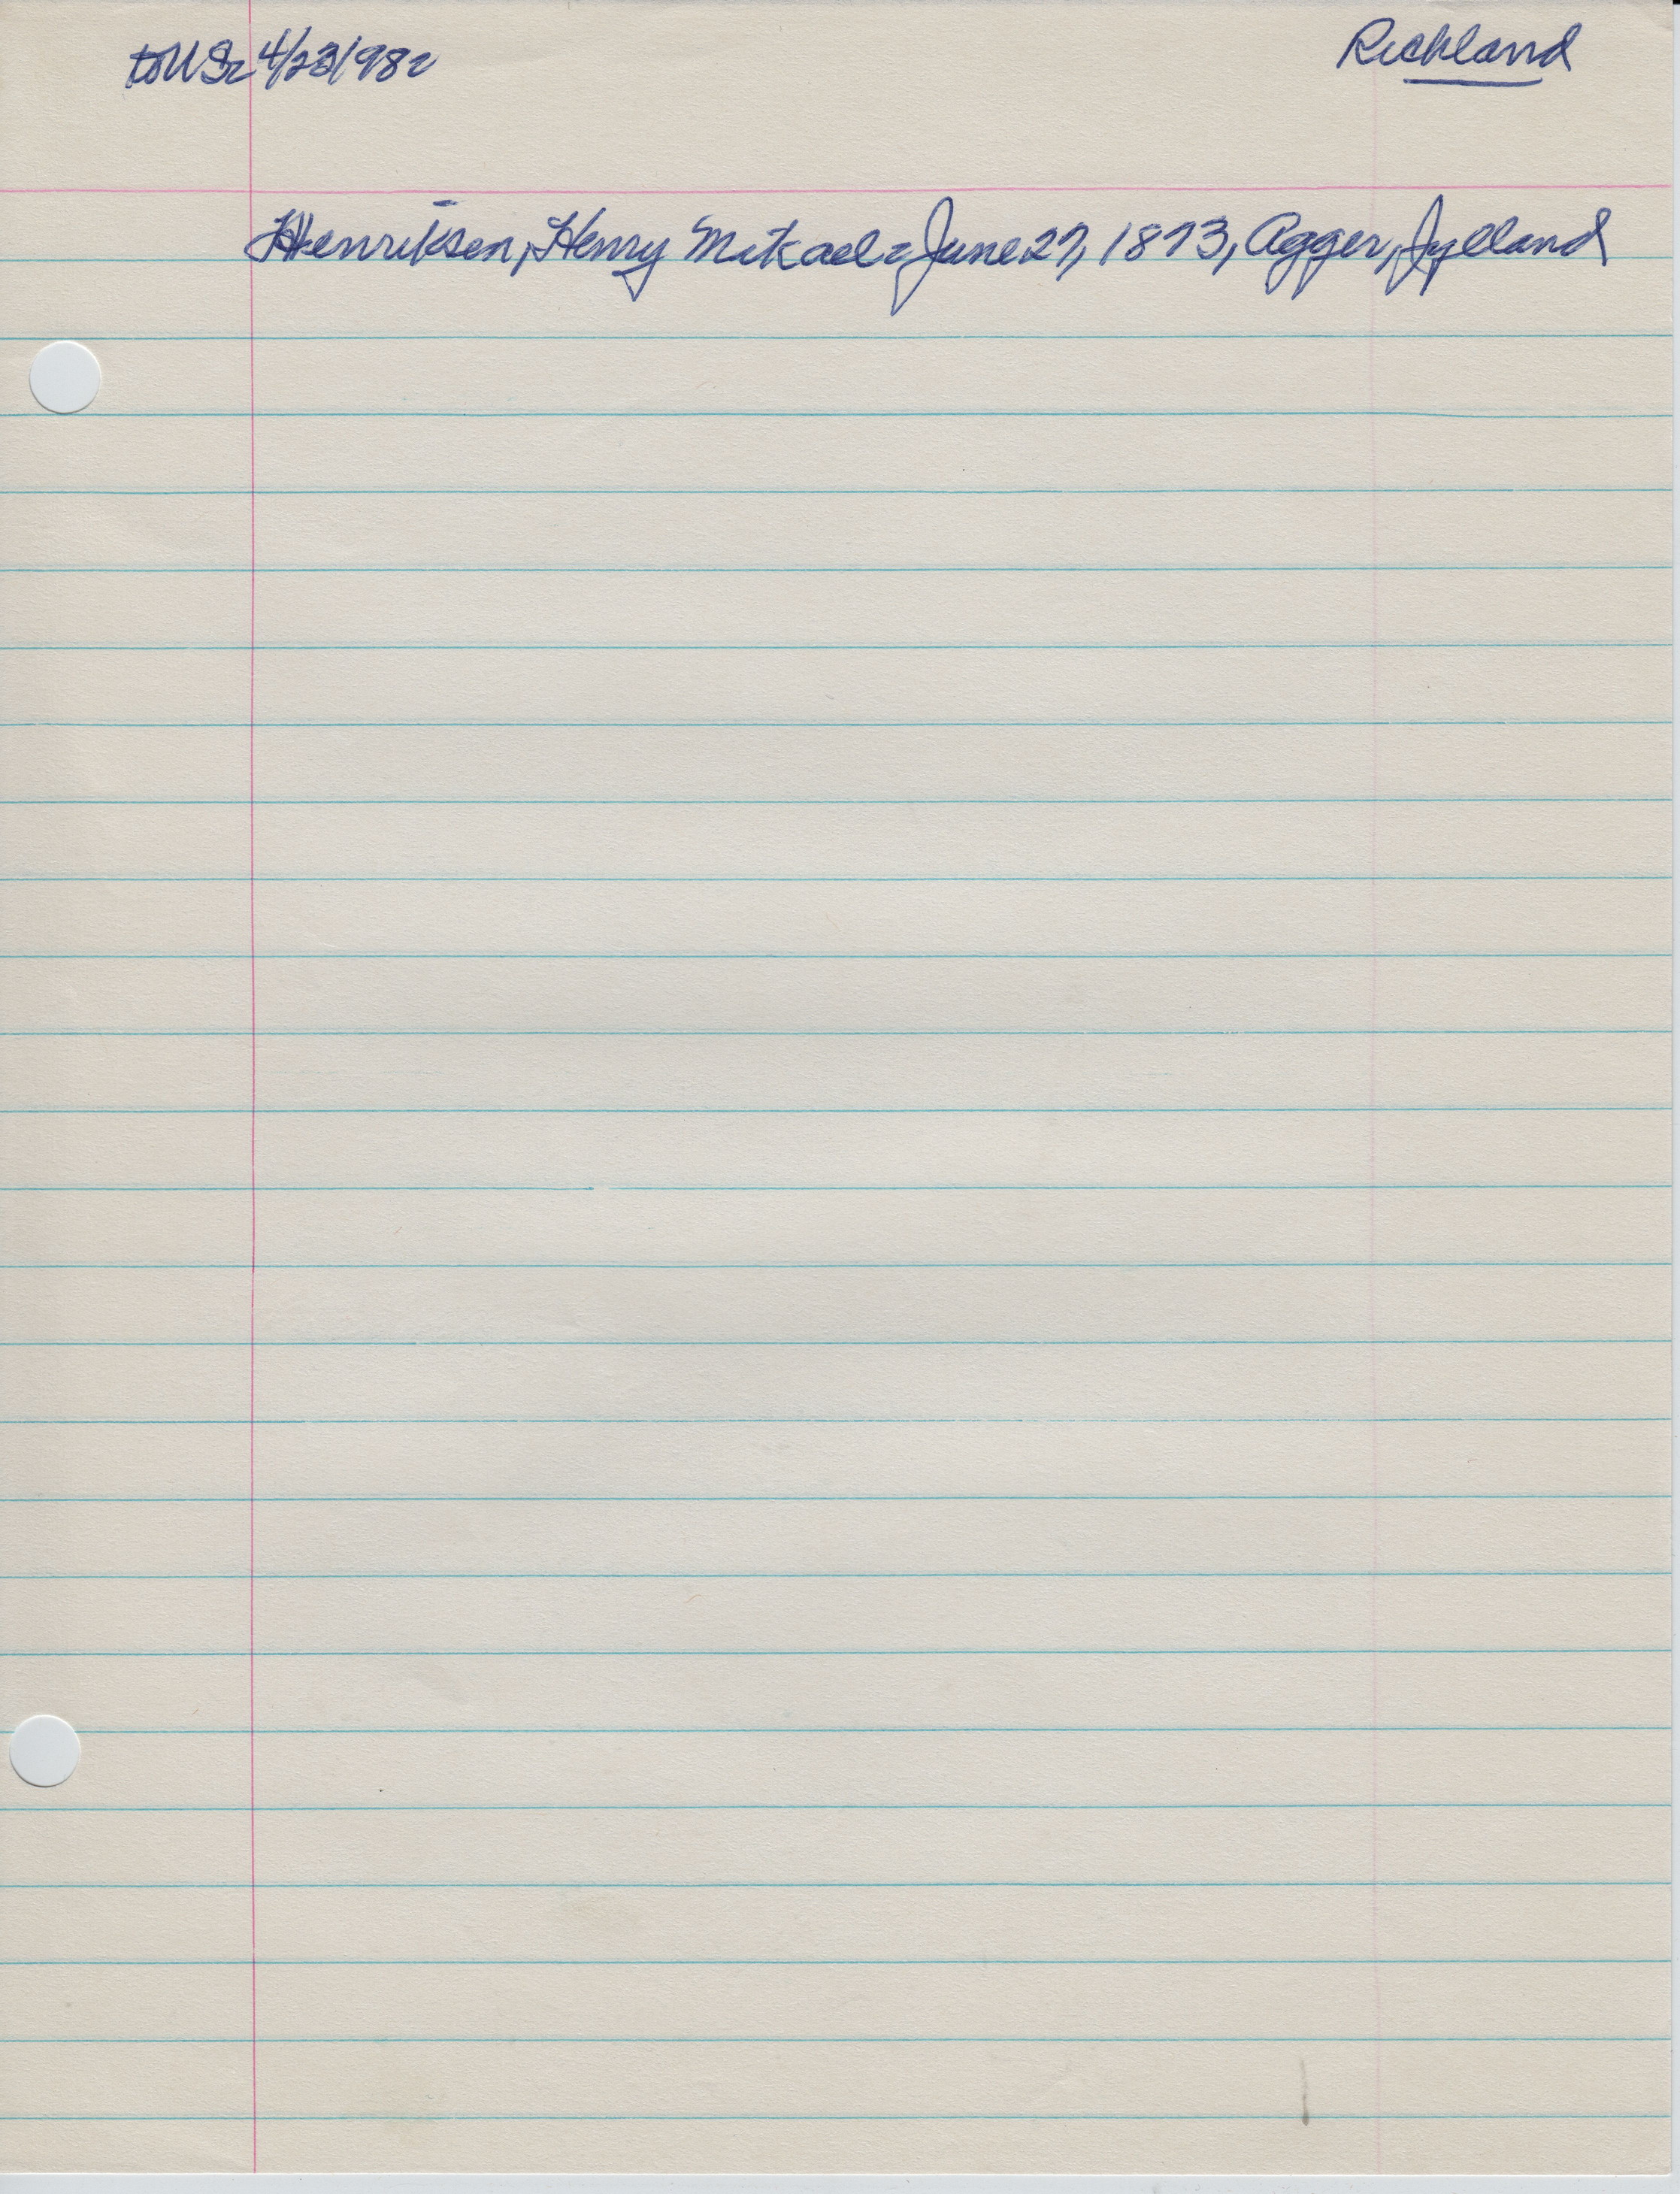 to US 4/23/1982
Richland
Henriksen, Henry Mikael = June 27, 1873, Agger, Jylland